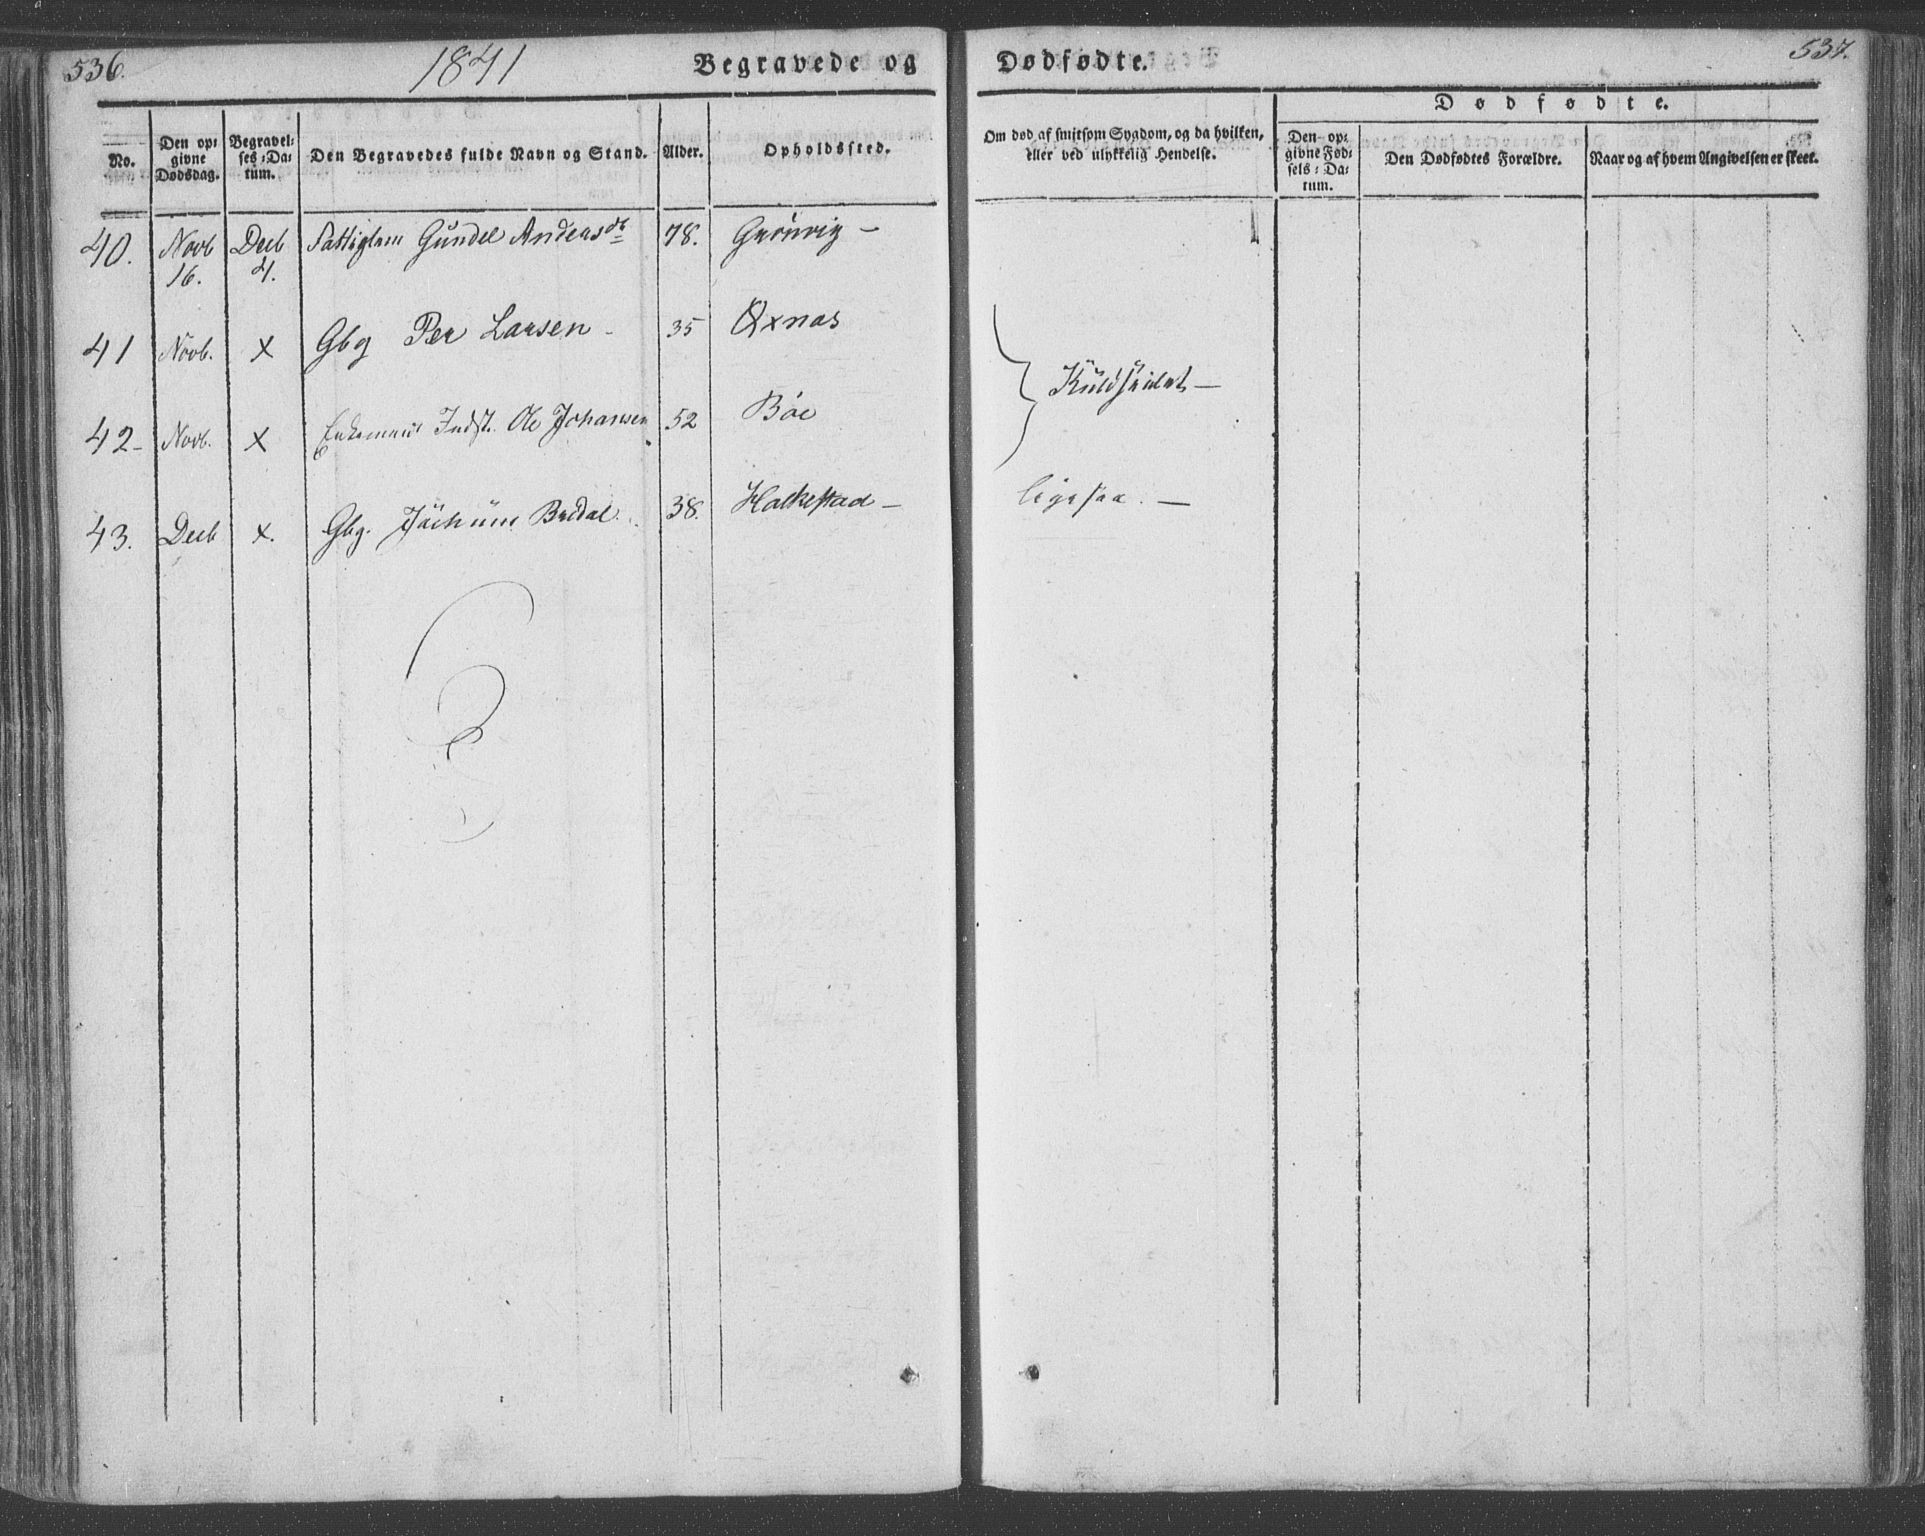 536. 1841 Begravede og Dødfødte. 537.
Dødfødte.
No. Den opgivne Dødsdag. Begravelses-Datum. Den Begravedes fulde Navn og Stand. Alder. Opholdssted. Om død af smitsom Sygdom, og da hvilken, eller ved ulykkelig Hendelse. Den opgivne Fødsels-Datum. Den Dødfødtes Forældre. Naar og af hvem Angivelsen er skeet.
40. Novb 16. Decb 4. Fattiglem Gundel Andersdr 78. Grønvig –
41 Novb. x Gbg Per Larsen – 35 Øxnæs
Kuldseilet –
42 – Novb. x Enkemand Indst. Ole Johansen 52 Bøe
43. Decb x. Gbg. Jochum Bredal. 38. Halkestad – ligesaa. –